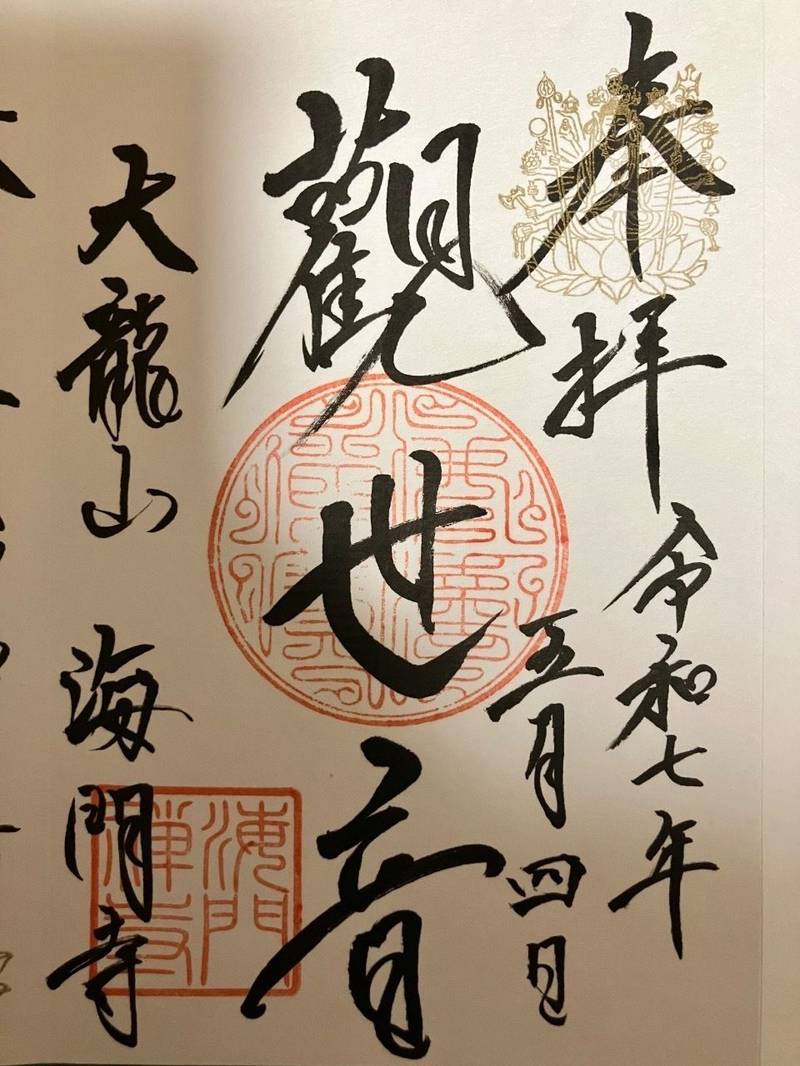 奉拝
令和七年
五月四日
觀世音
大龍山 海門寺
海門
禅寺